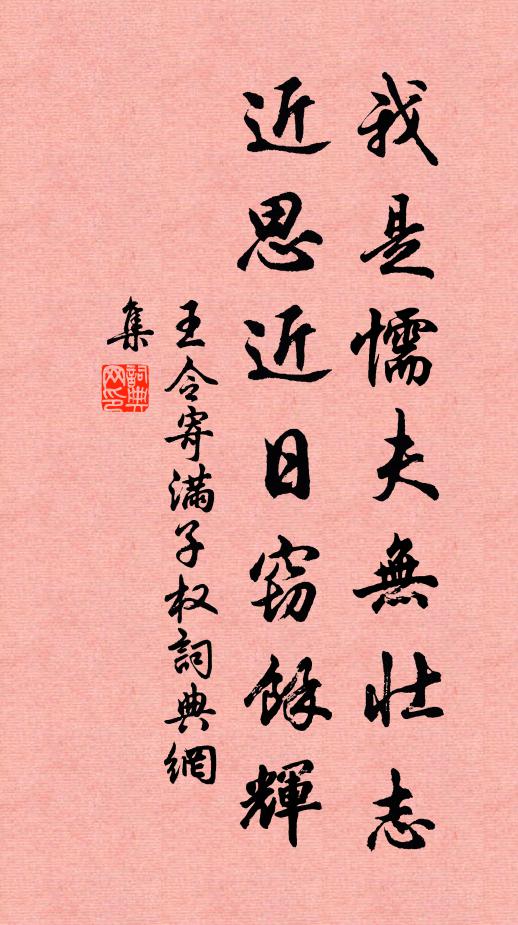 我是懦夫無壯志
近思近日窃餘輝
王令寄满子权詞典網
集
詞典
网印